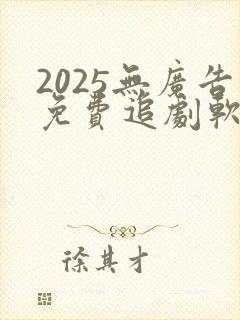 2025無廣告
免費追劇軟
徐其才